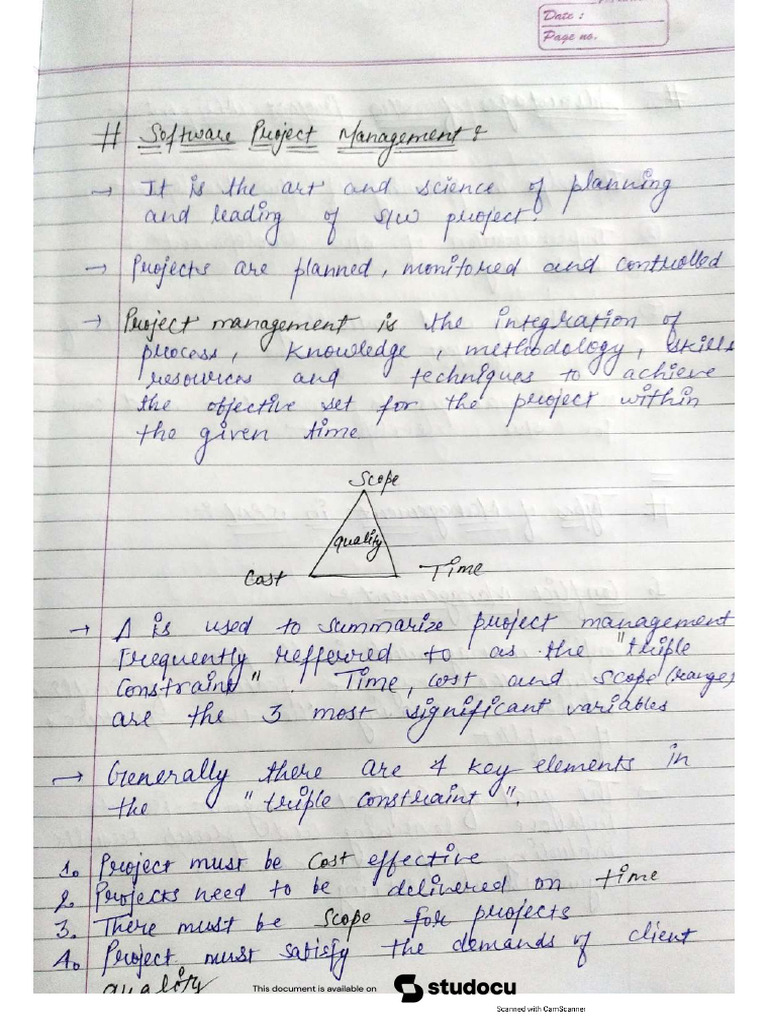 Date :
Page no.
# Software Project Management :
→ It is the art and science of planning
and leading of s/w project.
→ Projects are planned, monitored and controlled
→ Project management is the integration of
process, knowledge, methodology, skills
resources and techniques to achieve
the objective set for the project within
the given time.
Scope
quality
Cost
Time
→ Δ is used to summarize project management
Frequently refferred to as the "triple
Constraint". Time, cost and scope (range)
are the 3 most significant variables
→ Generally there are 4 key elements in
the "triple constraint".
1. Project must be Cost effective
2. Projects need to be delivered on time
3. There must be Scope for projects
4. Project must satisfy the demands of client
quality
This document is available on studocu
Scanned with CamScanner